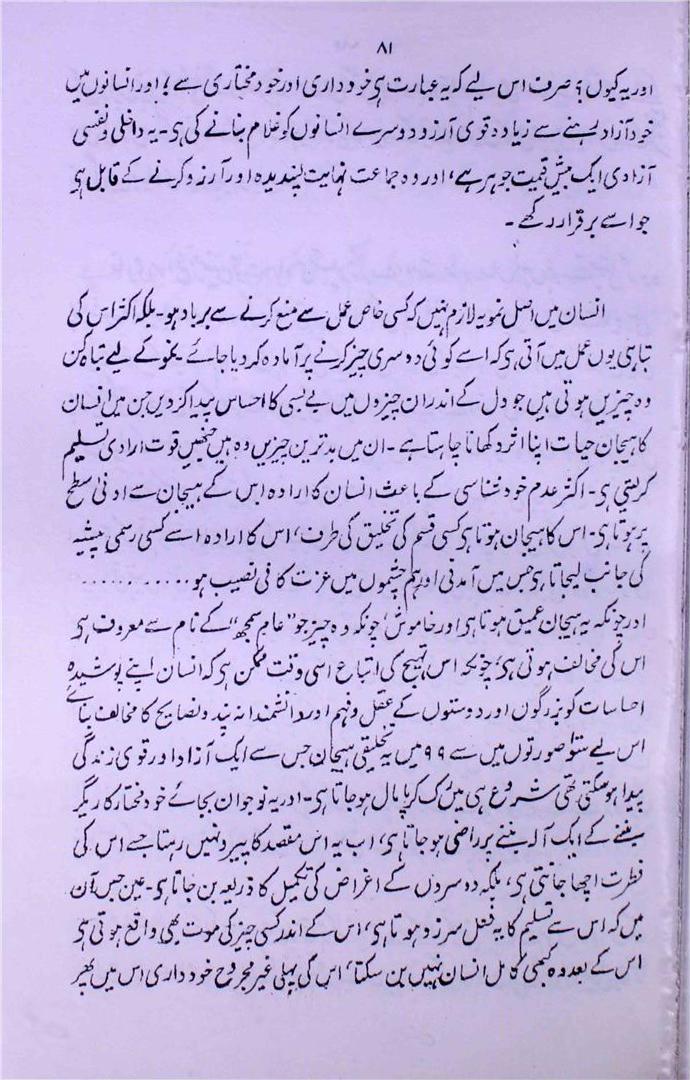 ۸۱
اور یہ کیوں؟ صرف اس لیے کہ یہ عبارت ہی خود داری اور خود مختاری سے؛ اور انسانوں میں
خود آزاد رہنے سے زیادہ قوی آرزو دوسرے انسانوں کو غلام بنانے کی ہی۔ یہ داخلی و نفسی
آزادی ایک بیش قیمت جوہر ہے، اور وہ جماعت نہایت پسندیدہ اور آرزو کرنے کے قابل ہی
جو اسے برقرار رکھے۔
انسان میں اصل نمو یہ لازم نہیں کہ کسی خاص عمل سے منع کرنے سے برباد ہو۔ بلکہ اکثر اس کی
تباہی یوں عمل میں آتی ہی کہ اسے کوئی دوسری چیز کرنے پر آمادہ کر دیا جائے۔ نمو کے لیے تباہ کن
وہ چیزیں ہوتی ہیں جو دل کے اندر ان چیزوں میں بے بسی کا احساس پیدا کر دیں جن میں انسان
کا ہیجان حیات اپنا اثر دکھانا چاہتا ہے۔ ان میں بدترین چیزیں وہ ہیں جنھیں قوت ارادی تسلیم
کر لیتی ہی۔ اکثر عدم خود شناسی کے باعث انسان کا ارادہ اس کے ہیجان سے ادنی سطح
پر ہوتا ہی۔ اس کا ہیجان ہوتا ہی کسی قسم کی تخلیق کی طرف، اس کا ارادہ اسے کسی رسمی پیشہ
کی جانب لیجاتا ہی جس میں آمدنی اور ہم چشموں میں عزت کافی نصیب ہو ..........
اور چونکہ یہ ہیجان عمیق ہوتا ہی اور خاموش‘ چونکہ وہ چیز جو ”عام سمجھ“ کے نام سے معروف ہی
اس کی مخالف ہوتی ہی، چونکہ اس تہیج کی اتباع اسی وقت ممکن ہی کہ انسان اپنے پوشیدہ
احساسات کو بزرگوں اور دوستوں کے عقل و فہم اور دانشمندانہ پند و نصایح کا مخالف بنائے
اس لیے سو صورتوں میں سے ۹۹ میں یہ تخلیقی ہیجان جس سے ایک آزاد اور قوی زندگی
پیدا ہو سکتی تھی شروع ہی میں رک کر پامال ہو جاتا ہی۔ اور یہ نوجوان بجائے خود مختار کاریگر
بننے کے ایک آلہ بننے پر راضی ہو جاتا ہی، اب یہ اس مقصد کا پیرو نہیں رہتا جسے اس کی
فطرت اچھا جانتی ہی، بلکہ دوسروں کے اغراض کی تکمیل کا ذریعہ بن جاتا ہی۔ عین جس آن
میں کہ اس سے تسلیم کا یہ فعل سرزد ہوتا ہی، اس کے اندر کسی چیز کی موت بھی واقع ہوتی ہی
اس کے بعد وہ کبھی کامل انسان نہیں بن سکتا، اس کی پہلی غیر مجروح خود داری اس میں پھر